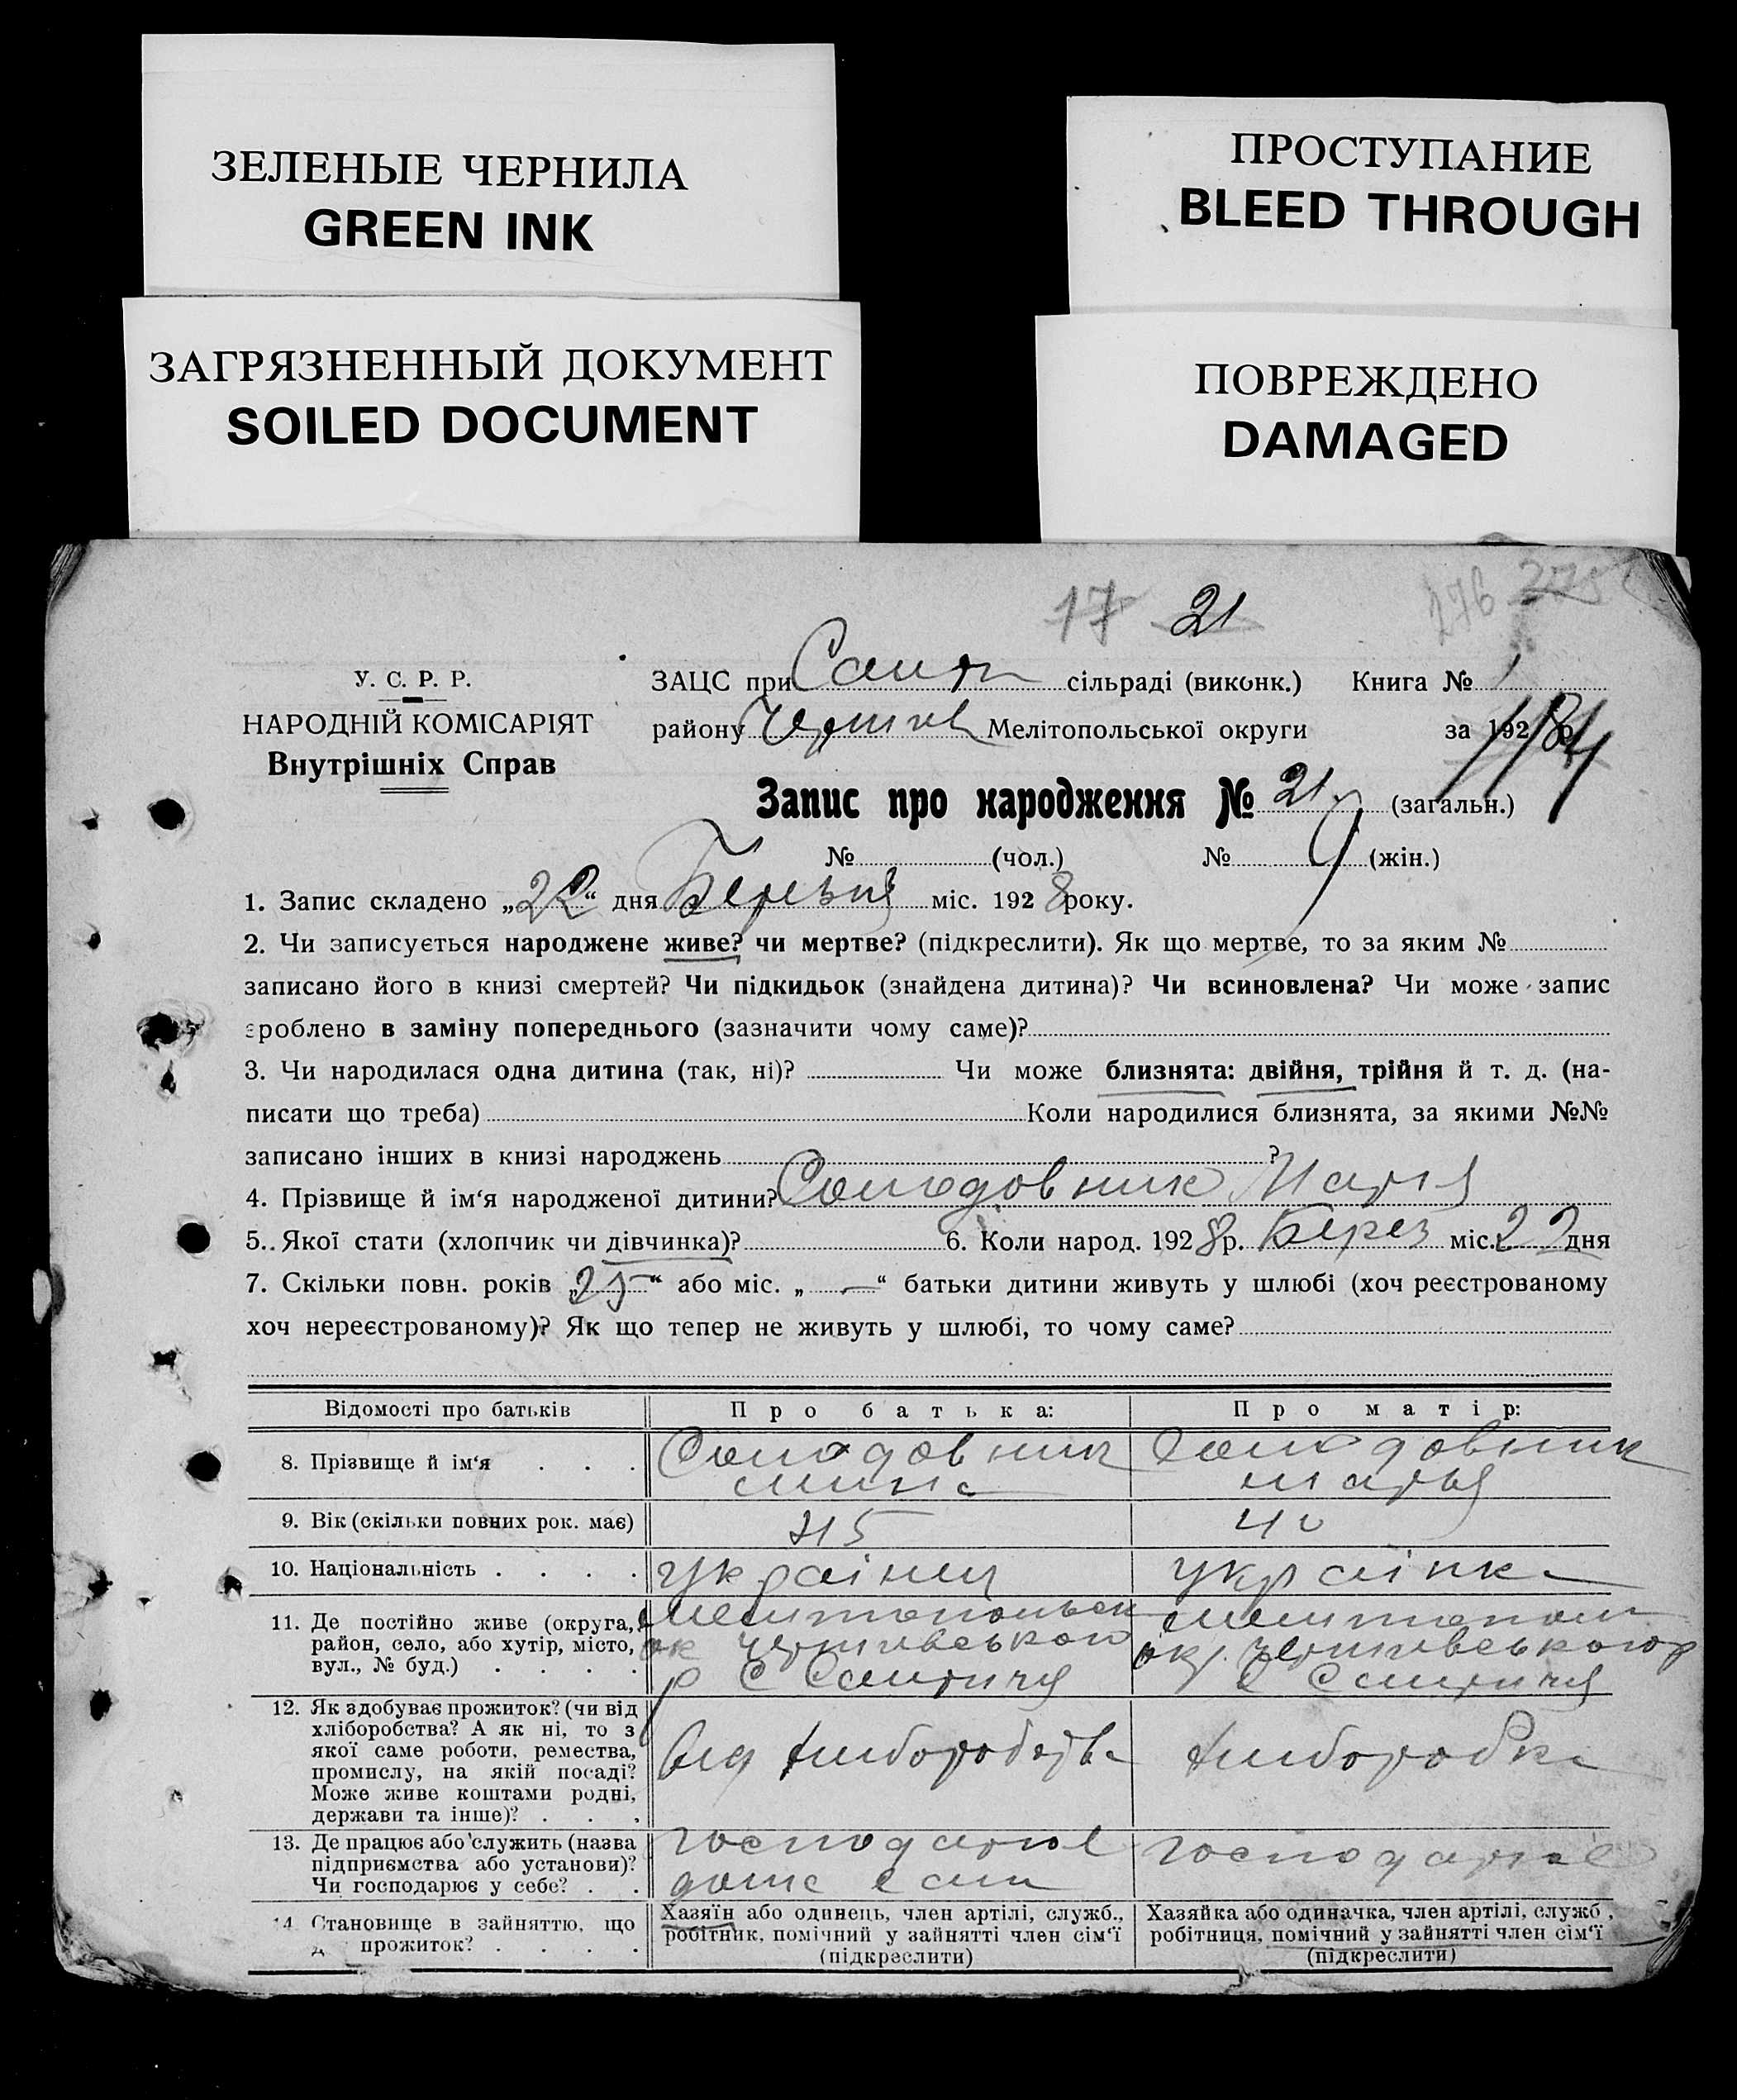 ЗЕЛЕНЫЕ ЧЕРНИЛА
GREEN INK
ПРОСТУПАНИЕ
BLEED THROUGH
ЗАГРЯЗНЕННЫЙ ДОКУМЕНТ
SOILED DOCUMENT
ПОВРЕЖДЕНО
DAMAGED
17 21 276 275
У. С. Р. Р.
НАРОДНІЙ КОМІСАРІЯТ
Внутрішніх Справ
ЗАЦС при сільраді (виконк.) Книга № 1
району Черниг Мелітопольської округи за 1928 р.
Запис про народження № 21 (загальн.)
№ (чол.) № 9 (жін.)
1. Запис складено „22“ дня Березня міс. 1928 року.
2. Чи записується народжене живе? чи мертве? (підкреслити). Як що мертве, то за яким №
записано його в книзі смертей? Чи підкидьок (знайдена дитина)? Чи всиновлена? Чи може запис
зроблено в заміну попереднього (зазначити чому саме)?
3. Чи народилася одна дитина (так, ні)? Чи може близнята: двійня, трійня й т. д. (на-
писати що треба) Коли народилися близнята, за якими №№
записано інших в книзі народжень ?
4. Прізвище й ім‘я народженої дитини? Солодовник Марія
5. Якої стати (хлопчик чи дівчинка)? 6. Коли народ. 1928 р. Берез міс. 22 дня
7. Скільки повн. років „25“ або міс. „—“ батьки дитини живуть у шлюбі (хоч реєстрованому
хоч нереєстрованому)? Як що тепер не живуть у шлюбі, то чому саме?
Відомості про батьків Про батька: Про матір:
8. Прізвище й ім‘я . . . Солодовник Солодовник
Марья
9. Вік (скільки повних рок. має) 45 40
10. Національність . . . . українец українка
11. Де постійно живе (округа, район, село, або хутір, місто, вул., № буд.) . . . .
Мелитопольск
ок Чернигівського
р С Салтичя
Мелитопол
окр. Чернигівського р
С Салтичя
12. Як здобуває прожиток? (чи від хліборобства? А як ні, то з якої саме роботи, ремества, промислу, на якій посаді? Може живе коштами родні, держави та інше)? . . .
від хлиборобства хлиборобка
13. Де працює або служить (назва підприємства або установи)? Чи господарює у себе? . .
господарює
дома сам
господарює
14. Становище в зайняттю, що
д прожиток? . . . .
Хазяїн або одинець, член артілі, служб., робітник, помічний у зайнятті член сім‘ї (підкреслити)
Хазяйка або одиначка, член артілі, служб., робітниця, помічний у зайнятті член сім‘ї (підкреслити)